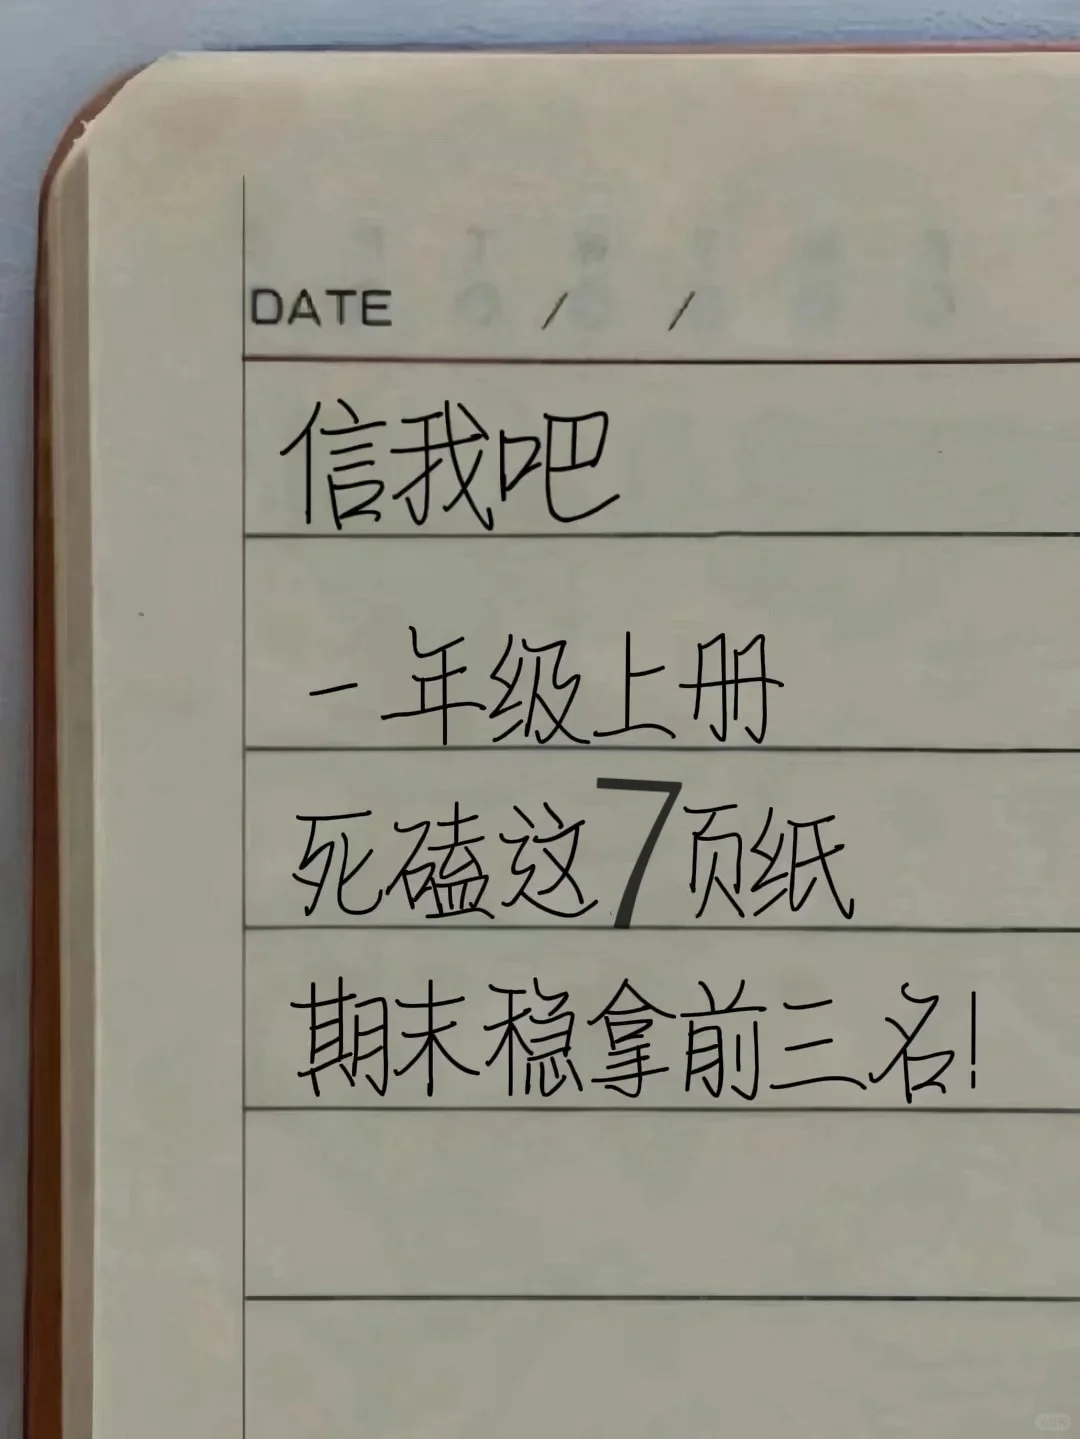 DATE / /
信我吧
一年级上册
死磕这7页纸
期末稳拿前三名!